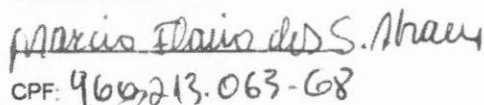 Marcio Flavio dos S.
CPF: 966.213.063-68